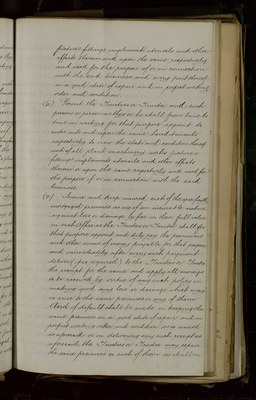 fixtures fittings implements utensils and other
effects therein and upon the same respectively
and used for the purpose of or in connection
with the said business and every part thereof
in a good state of repair and in proper working
order and condition
Permit the Trustees or Trustee and such
person or persons as they or he shall from time to
time in writing for that purpose appoint to
enter into and upon the same hereditaments
respectively to view the state and condition thereof
and of all plant machinery fixtures
fittings implements utensils and other effects
therein or upon the same respectively and used for
the purpose of or in connection with the said
business
Insure and keep insured such of the
mortgaged premises as are of an insurable nature
against loss or damage by fire in their full value
in such office as the Trustees or Trustee shall for
that purpose approve and duly pay the premiums
and other sums of money payable for that purpose
and immediately after every such payment
deliver if required to the Trustees or Trustee
the receipt for the same and apply all moneys
to be received by virtue of any such policy in
making good any loss or damage which may
to the same premises or any of them
And if default shall be made in keeping the
same premises in a good state of repair and in
proper working order and condition or so insured
as aforesaid or in delivering any such receipt as
aforesaid the Trustees or Trustee may repair
the same premises or such of them as shall